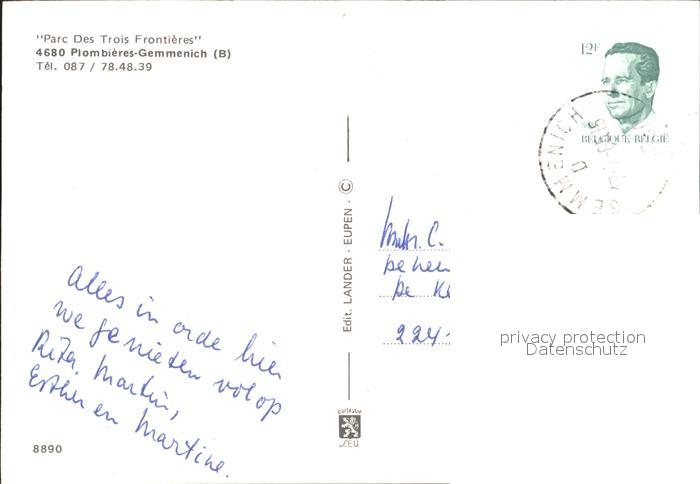 "Parc Des Trois Frontières"
4680 Plombières-Gemmenich (B)
Tél. 087 / 78.48.39
12F
BELGIQUE-BELGIË
GEMMENICH
D
Edit. LANDER - EUPEN - ©
C.
De
224
privacy protection
Datenschutz
Alles in orde hier
we genieten volop
Rita, Martin,
Esther en Martine.
8890